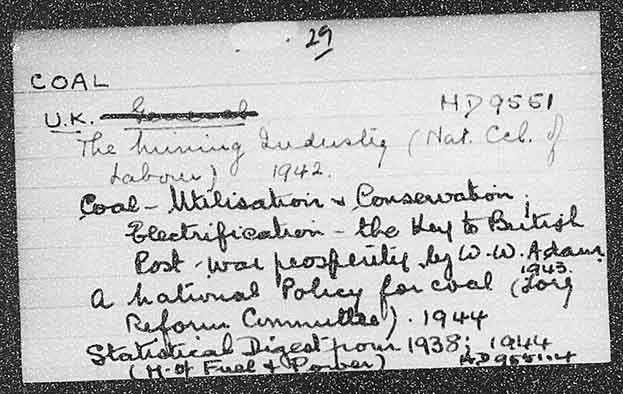 29
COAL
U.K. General HD9551
The Mining Industry (Nat. Ccl. of
Labour) 1942.
Coal - Utilisation & Conservation;
Electrification - the Key to British
Post-war prosperity, by W.W. Adams
1943.
A National Policy for coal (Tory
Reform Committee). 1944
Statistical Digest from 1938; 1944
(M. of Fuel & Power) HD9551.4